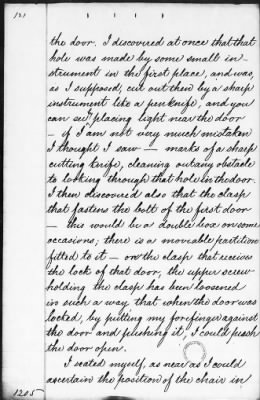 121
the door. I discovered at once that that
hole was made by some small in-
strument in the first place, and was,
as I supposed, cut out then by a sharp
instrument like a penknife, and you
can see, placing light near the door
— if I am not very much mistaken
I thought I saw — marks of a sharp
cutting knife, cleaning out any obstacle
to looking through that hole in the door.
I then discovered also that the clasp
that fastens the bolt of the first door
— this would be a double box on some
occasions, there is a movable partition
fitted to it — on the clasp that receives
the lock of that door, the upper screw
holding the clasp has been loosened
in such a way that when the door was
locked, by putting my forefinger against
the door and pushing it, I could push
the door open.
I seated myself, as near as I could
ascertain the position of the chair in
1205